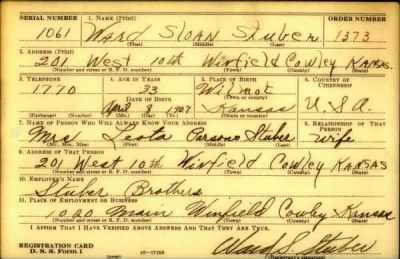 SERIAL NUMBER 1. NAME (Print) ORDER NUMBER
1061 Ward SLOAN Stuber 1373
(First) (Middle) (Last)
2. ADDRESS (Print)
201 West 10th Winfield Cowley KANSAS
(Number and street or R. F. D. number) (Town) (County) (State)
3. TELEPHONE 4. AGE IN YEARS 5. PLACE OF BIRTH 6. COUNTRY OF CITIZENSHIP
1770 33 Wilmot
DATE OF BIRTH (Town or county)
April 8 1907 Kansas U.S.A.
(Exchange) (Number) (Mo.) (Day) (Yr.) (State or country)
7. NAME OF PERSON WHO WILL ALWAYS KNOW YOUR ADDRESS 8. RELATIONSHIP OF THAT PERSON
Mrs Leota Parsons Stuber wife
(Mr., Mrs., Miss) (First) (Middle) (Last)
9. ADDRESS OF THAT PERSON
201 West 10th Winfield Cowley KANSAS
(Number and street or R. F. D. number) (Town) (County) (State)
10. EMPLOYER'S NAME
Stuber Brothers
11. PLACE OF EMPLOYMENT OR BUSINESS
1020 Main Winfield Cowley Kansas
(Number and street or R. F. D. number) (Town) (County) (State)
I AFFIRM THAT I HAVE VERIFIED ABOVE ANSWERS AND THAT THEY ARE TRUE.
REGISTRATION CARD
D. S. S. Form 1 Ward S Stuber
(Registrant's signature)